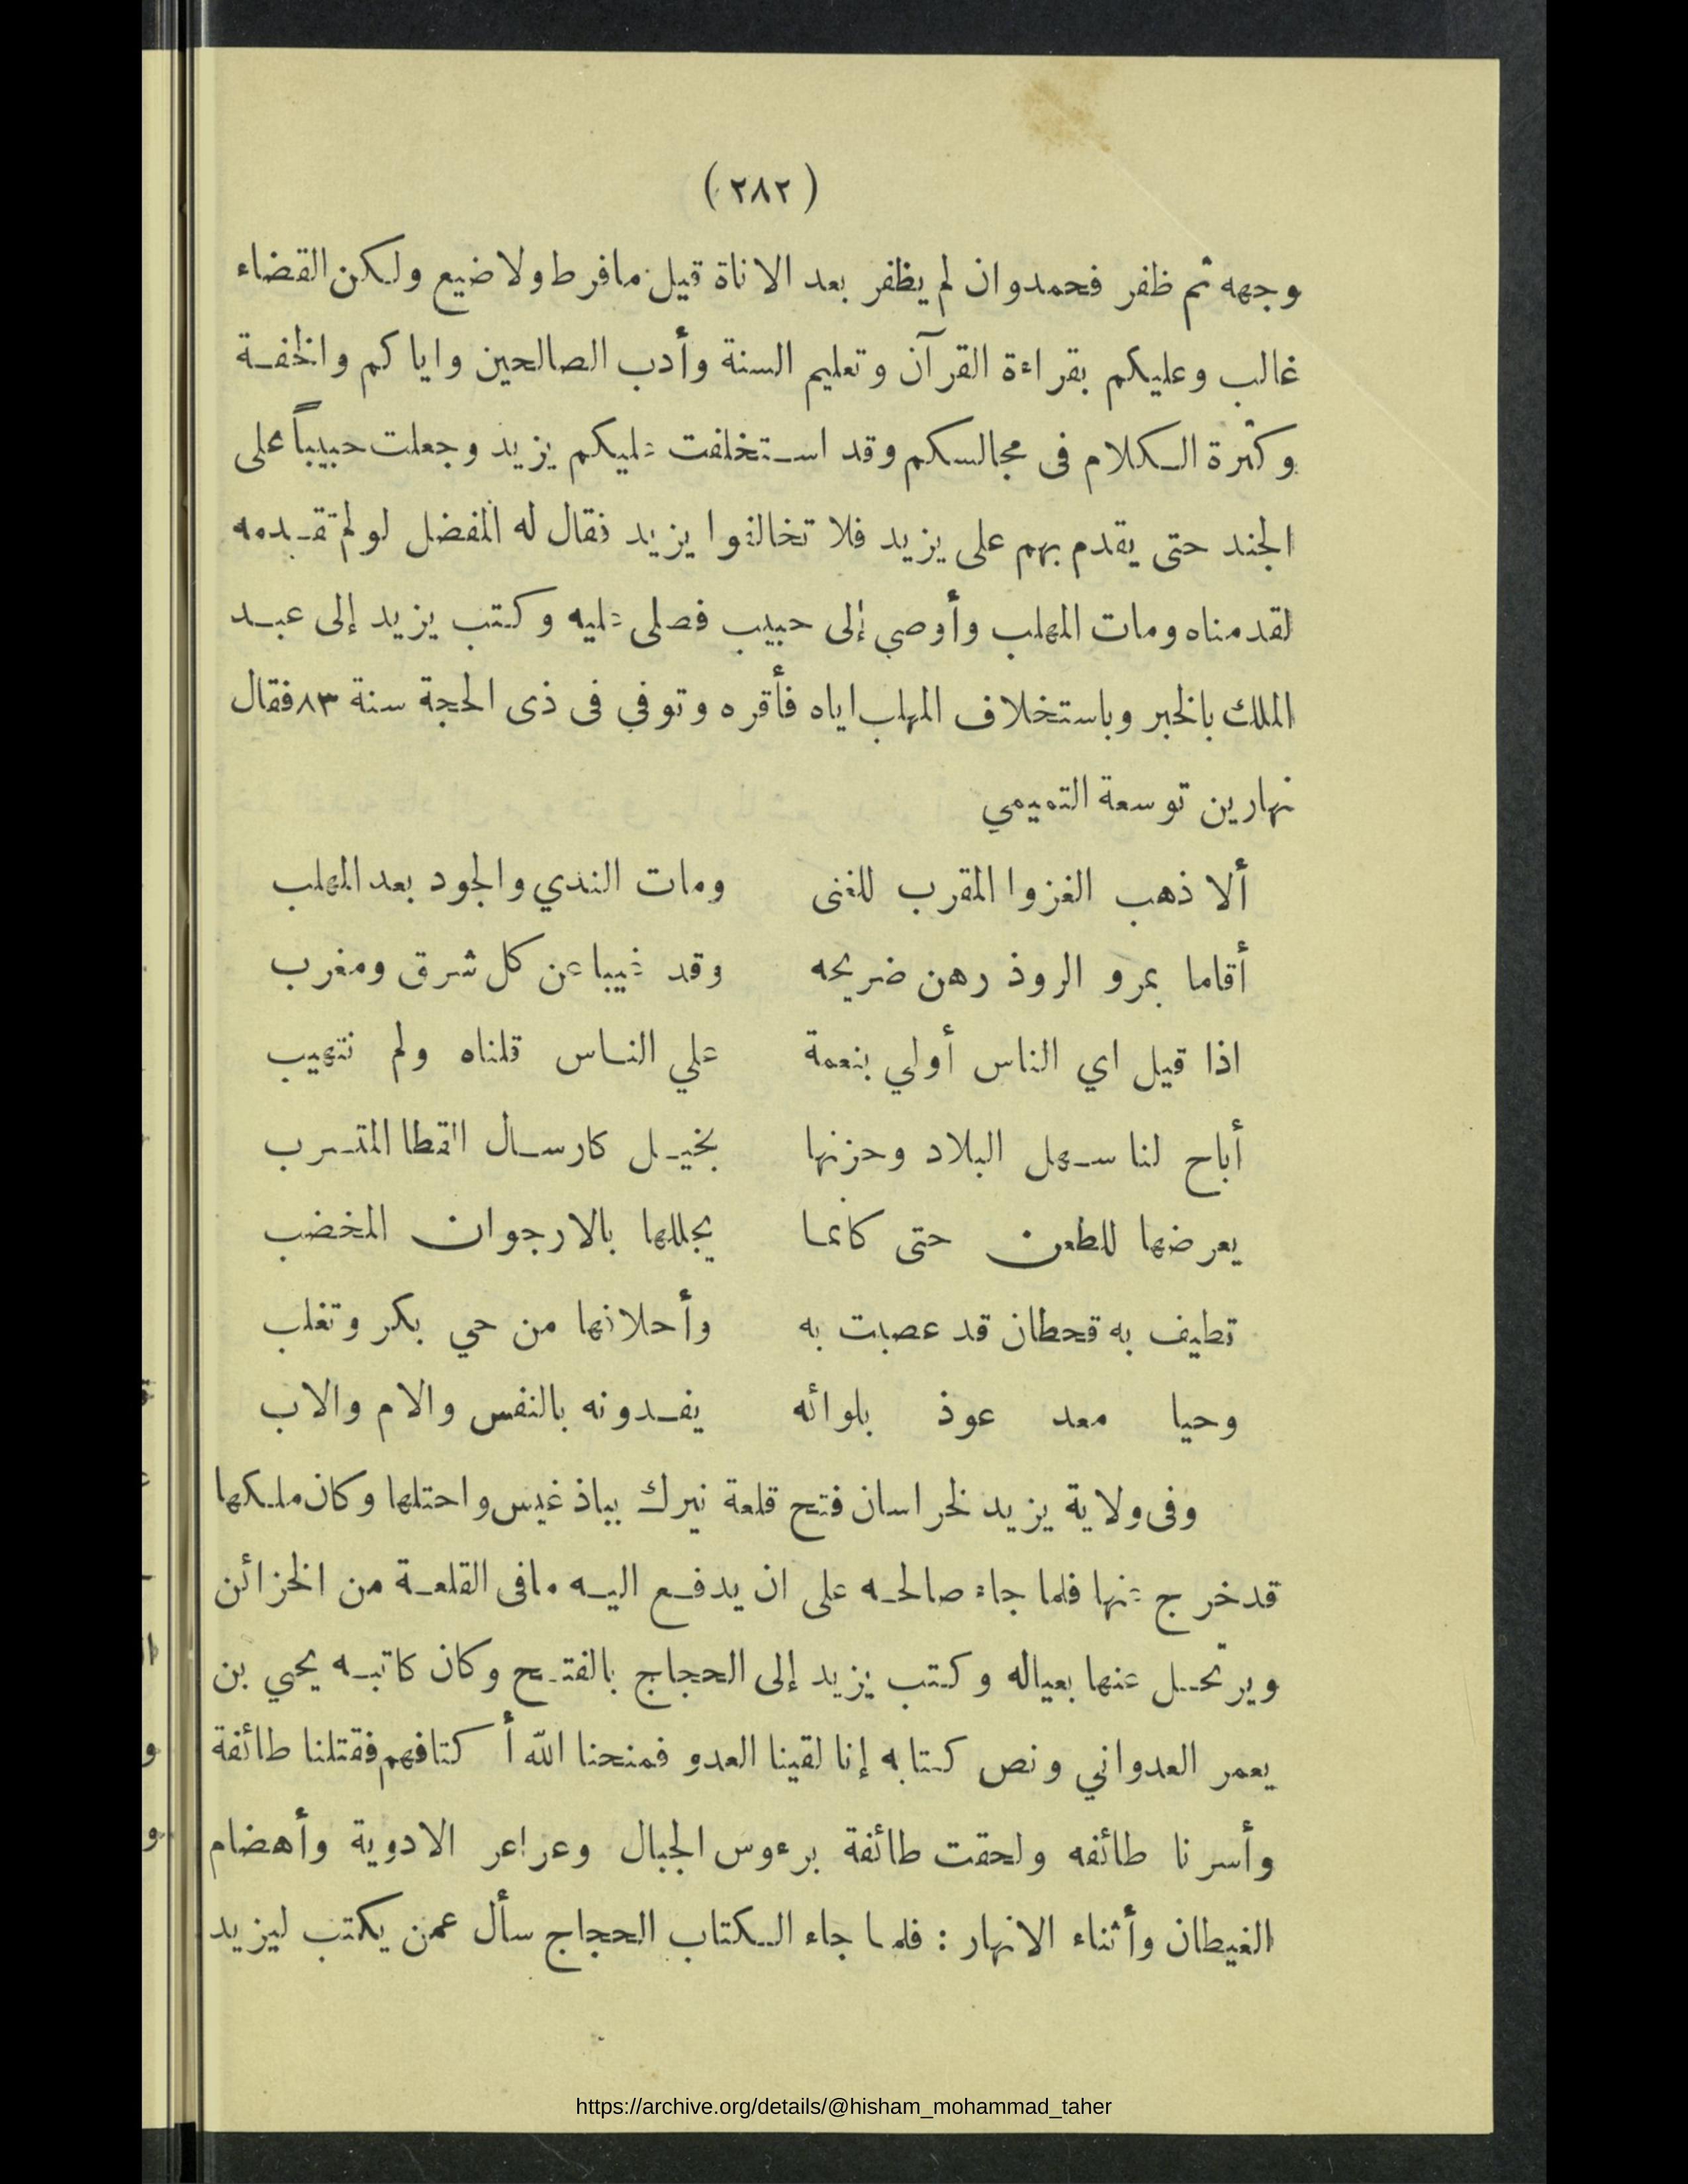 (٢٨٢)
وجهه ثم ظفر فحمد وان لم يظفر بعد الاناة قيل مافرط ولا ضيع ولكن القضاء
غالب وعليكم بقراءة القرآن وتعليم السنة وأدب الصالحين واياكم والخفة
وكثرة الكلام فى مجالسكم وقد استخلفت عليكم يزيد وجعلت حبيباً على
الجند حتى يقدم بهم على يزيد فلا تخالفوا يزيد فقال له المفضل لو لم تقدمه
لقدمناه ومات المهلب وأوصي إلى حبيب فصلى عليه وكتب يزيد إلى عبد
الملك بالخبر وباستخلاف المهلب اياه فأقره وتوفي فى ذى الحجة سنة ٨٣ فقال
نهارين توسعة التميمي
ألا ذهب الغزوا المقرب للغنى ومات الندي والجود بعد المهلب
أقاما بمرو الروذ رهن ضريحه وقد غيبا عن كل شرق ومغرب
اذا قيل اي الناس أولي بنعمة علي الناس قلناه ولم نتهيب
أباح لنا سهل البلاد وحزنها بخيل كارسال القطا المتسرب
يعرضها للطعن حتى كانما يجللها بالارجوان المخضب
تطيف به قحطان قد عصبت به وأحلافها من حي بكر وتغلب
وحيا معد عوذ بلوائه يفدونه بالنفس والام والاب
وفى ولاية يزيد لخراسان فتح قلعة نيرك بباذغيس واحتلها وكان ملكها
قد خرج عنها فلما جاء صالحه على ان يدفع اليه مافى القلعة من الخزائن
ويرتحل عنها بعياله وكتب يزيد إلى الحجاج بالفتح وكان كاتبه يحيي بن
يعمر العدواني ونص كتابه إنا لقينا العدو فمنحنا الله أكتافهم فقتلنا طائفة
وأسرنا طائفه ولحقت طائفة برءوس الجبال وعراعر الادوية وأهضام
الغيطان وأثناء الانهار : فلما جاء الكتاب الحجاج سأل عمن يكتب ليزيد
https://archive.org/details/@hisham_mohammad_taher